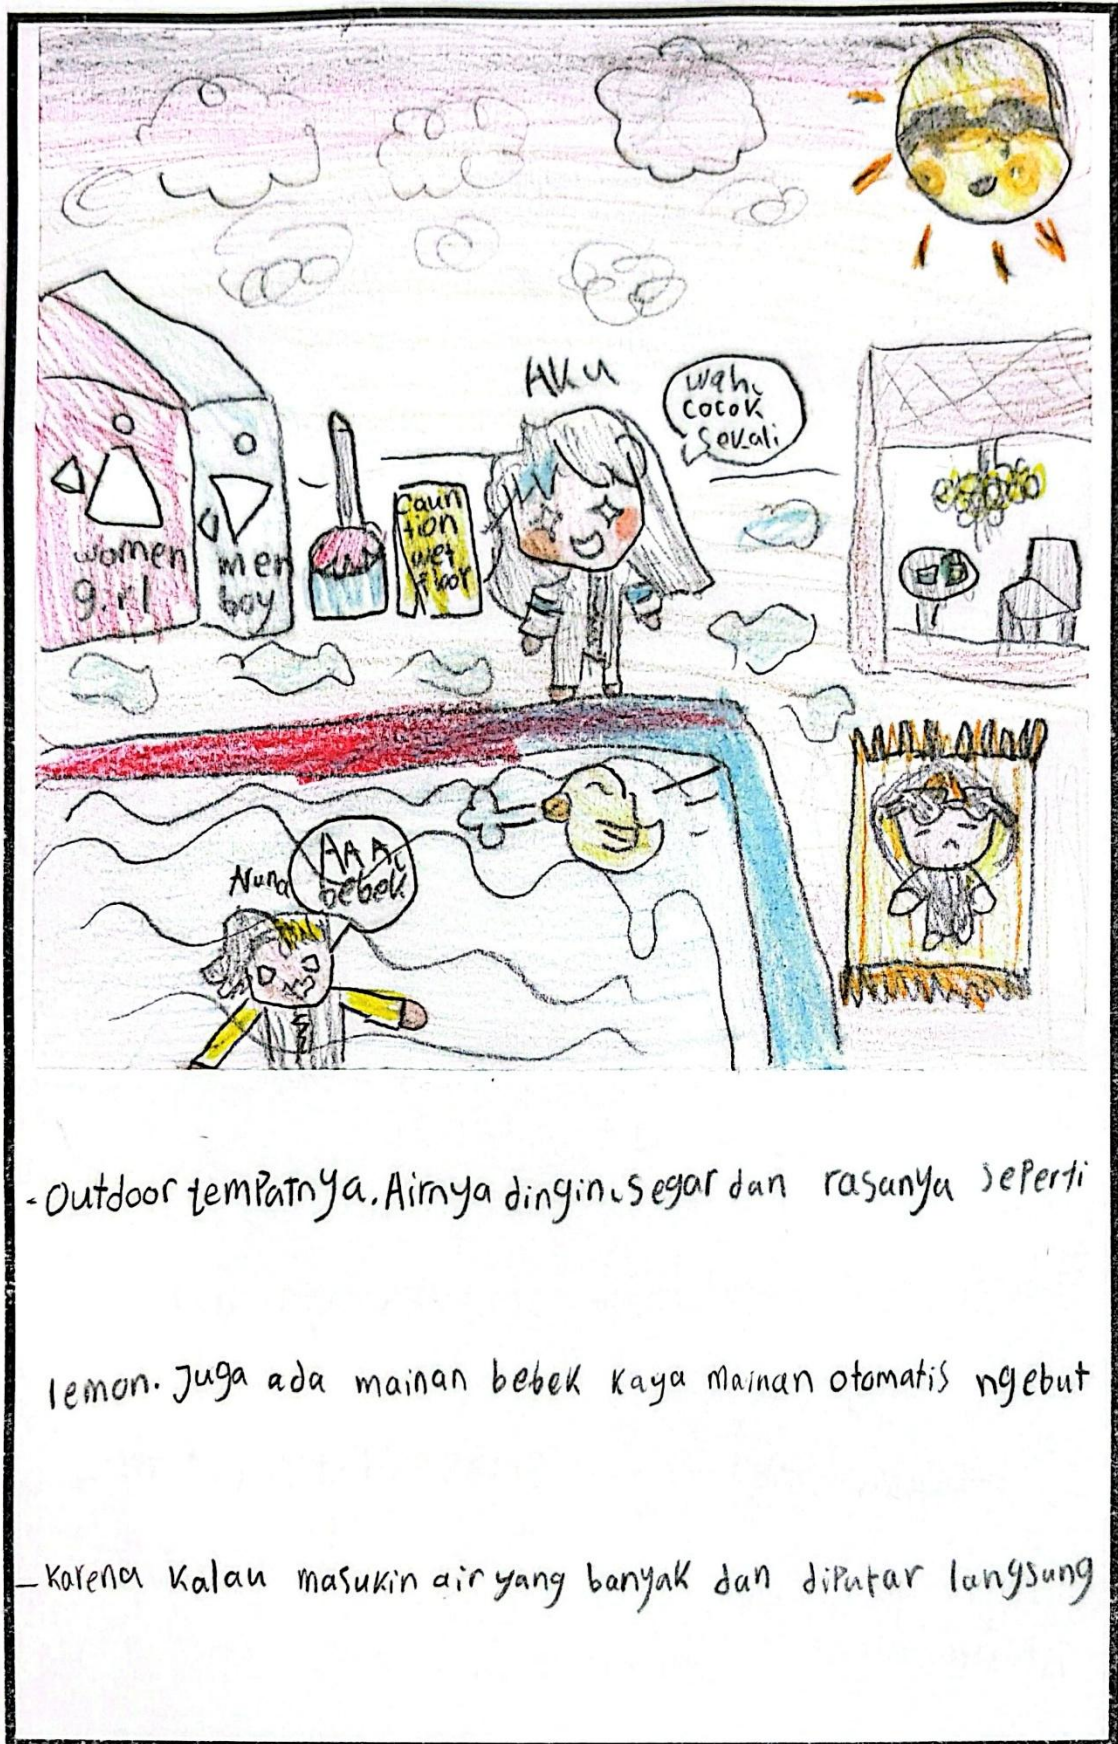 AKU
Wah,
cocok
sekali
women
girl
men
boy
Caun
tion
wet
floor
Nuna
AAA,
bebek
- Outdoor tempatnya. Airnya dingin, segar dan rasanya seperti
lemon. Juga ada mainan bebek kaya mainan otomatis ngebut
- karena kalau masukin air yang banyak dan diputar langsung